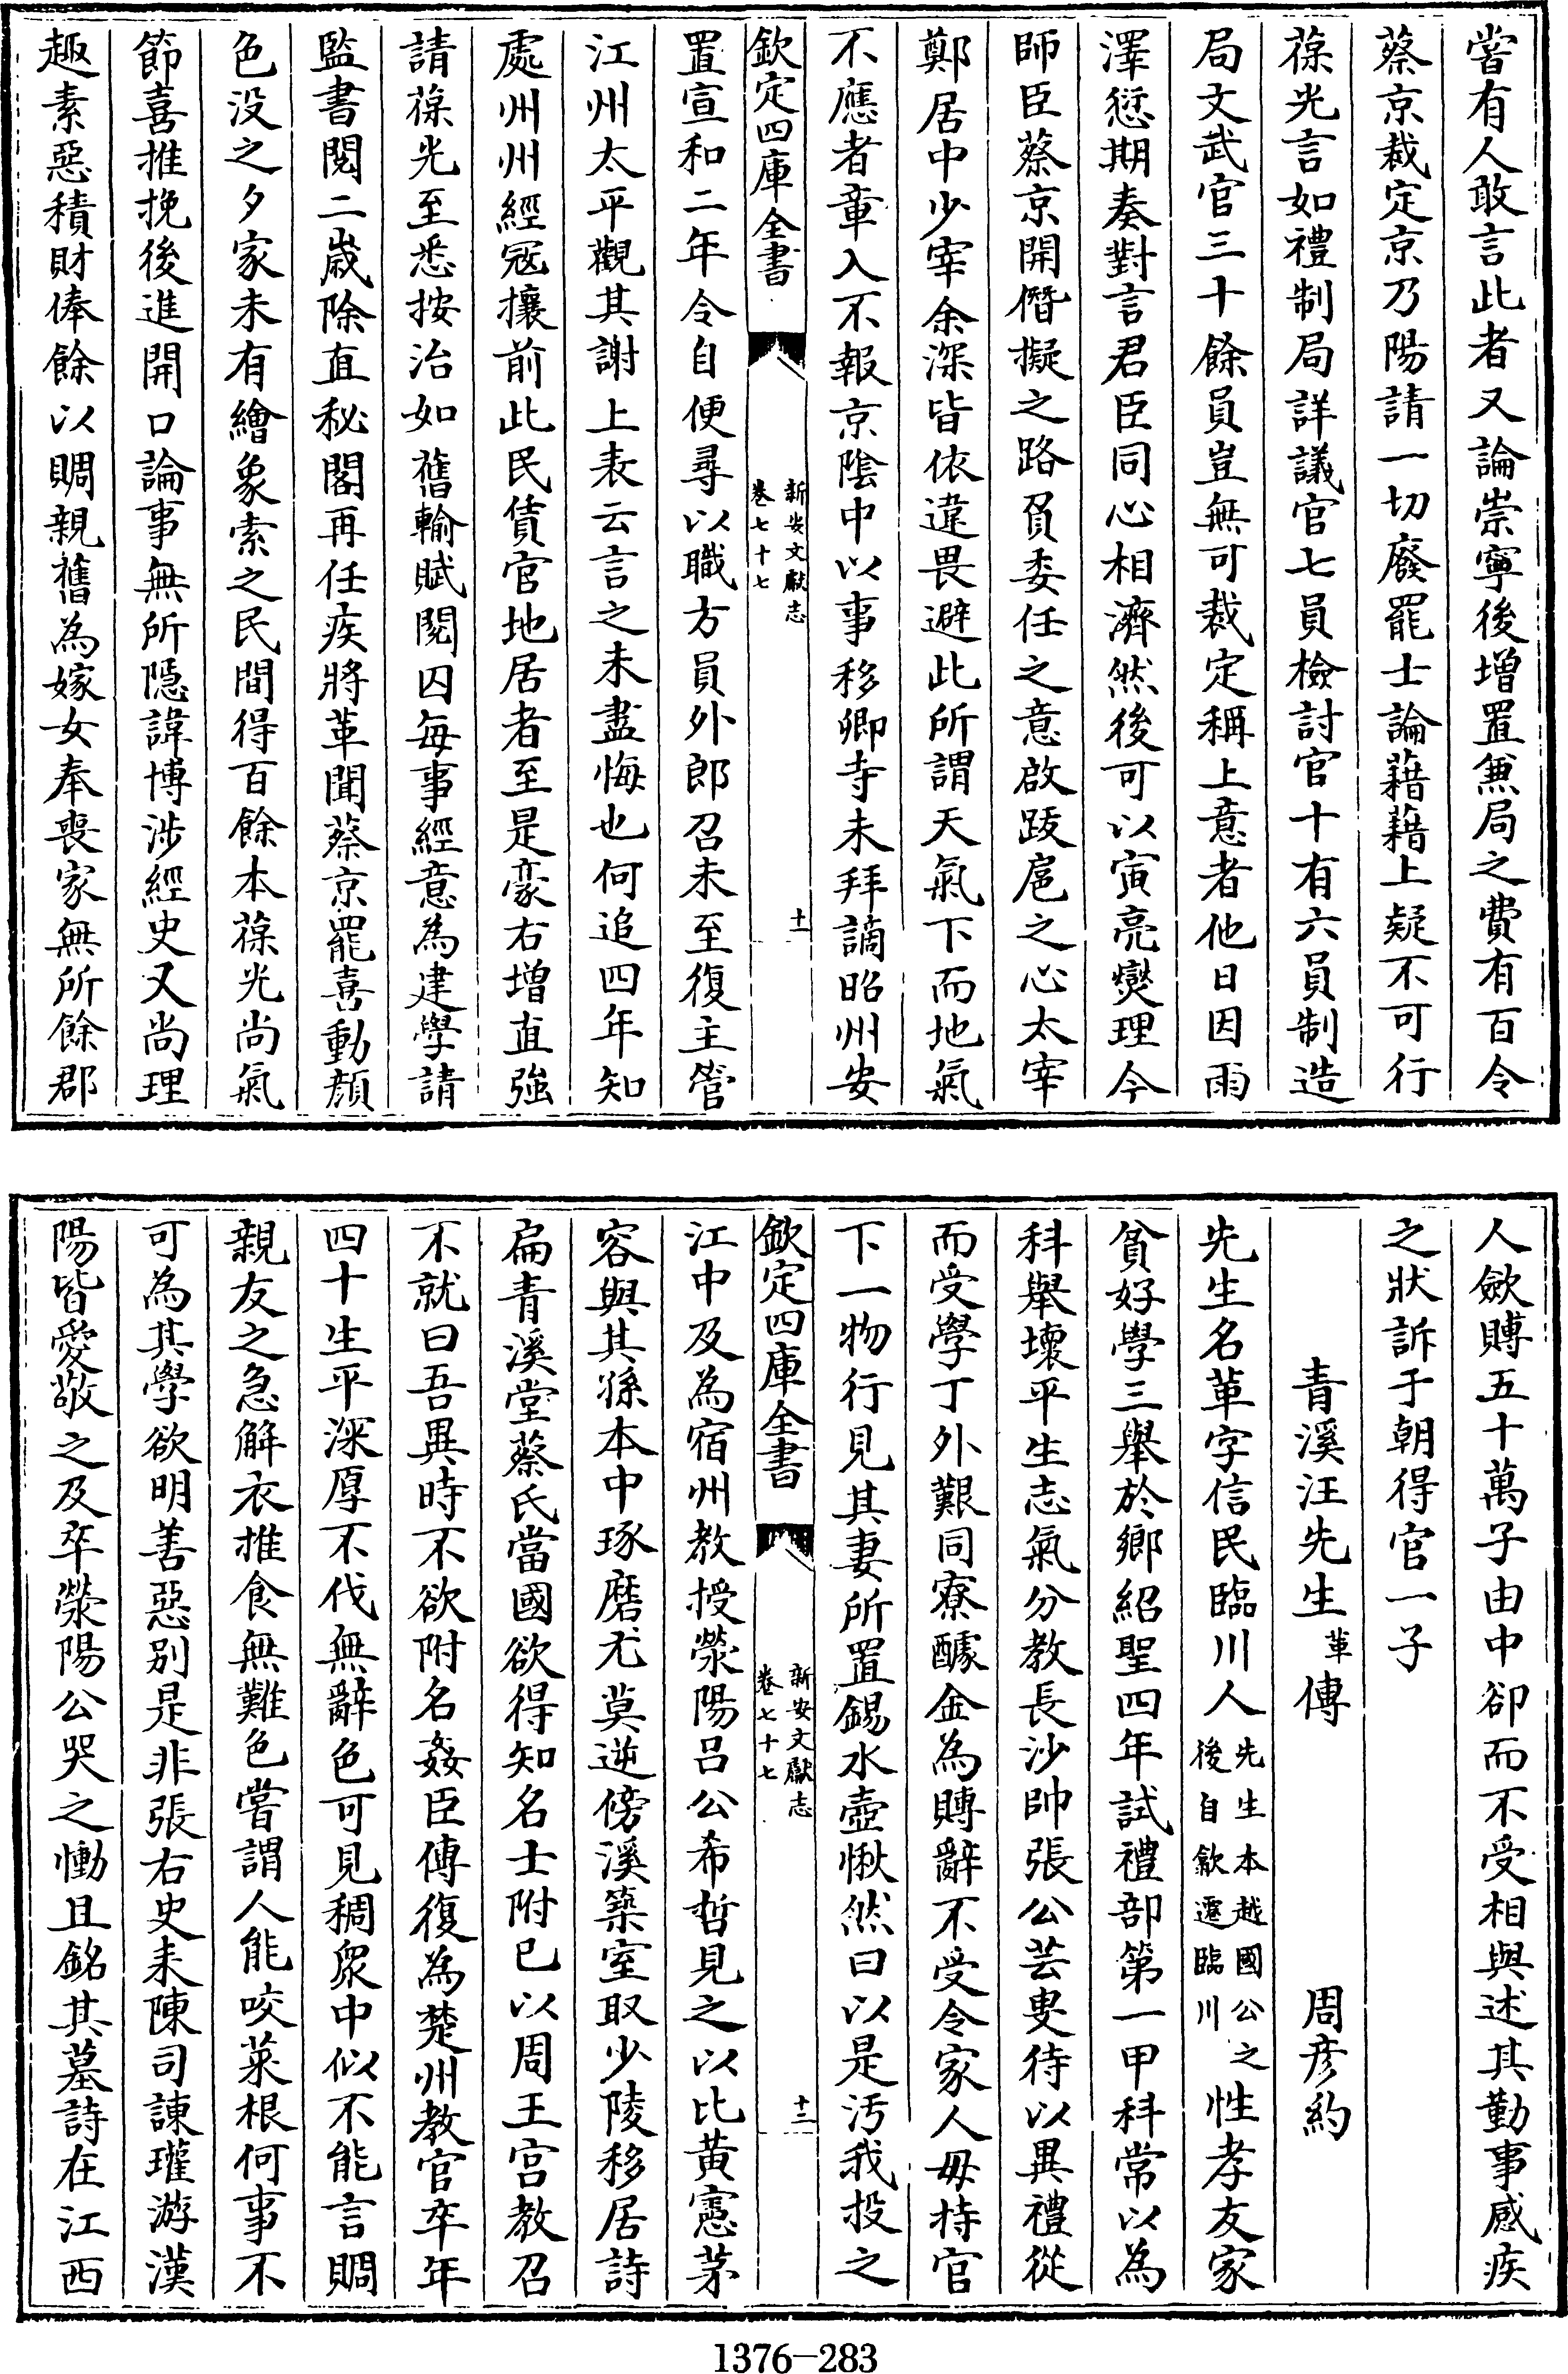 嘗有人敢言此者又論崇寧後增置兼局之費有百令
蔡京裁定京乃陽請一切廢罷士論藉藉上疑不可行
葆光言如禮制局詳議官七員檢討官十有六員制造
局文武官三十餘員豈無可裁定稱上意者他日因雨
澤愆期奏對言君臣同心相濟然後可以寅亮爕理今
師臣蔡京開僭擬之路負委任之意啟跋扈之心太宰
鄭居中少宰余深皆依違畏避此所謂天氣下而地氣
不應者章入不報京陰中以事移卿寺未拜謫昭州安
欽定四庫全書
新安文獻志
卷七十七
十一
置宣和二年令自便尋以職方員外郎召未至復主管
江州太平觀其謝上表云言之未盡悔也何追四年知
處州州經冦攘前此民賃官地居者至是豪右增直強
請葆光至悉按治如舊輸賦閱囚每事經意為建學請
監書閱二嵗除直秘閣再任疾將革聞蔡京罷喜動顔
色没之夕家未有繪象索之民間得百餘本葆光尚氣
節喜推挽後進開口論事無所隱諱博涉經史又尚理
趣素惡積財俸餘以賙親舊為嫁女奉喪家無所餘郡
人歛賻五十萬子由中卻而不受相與述其勤事感疾
之狀訴于朝得官一子
青溪汪先生革傳 周彦約
先生名革字信民臨川人先生本越國公之後自歙遷臨川性孝友家
貧好學三舉於鄉紹聖四年試禮部第一甲科常以為
科舉壞平生志氣分教長沙帥張公芸叟待以異禮從
而受學丁外艱同寮醵金為賻辭不受令家人毋持官
下一物行見其妻所置錫水壺愀然曰以是汚我投之
欽定四庫全書
新安文獻志
卷七十七
十二
江中及為宿州教授滎陽吕公希哲見之以比黄憲茅
容與其孫本中琢磨尤莫逆傍溪築室取少陵移居詩
扁青溪堂蔡氏當國欲得知名士附已以周王宫教召
不就曰吾異時不欲附名姦臣傳復為楚州教官卒年
四十生平深厚不伐無辭色可見稠衆中似不能言賙
親友之急解衣推食無難色嘗謂人能咬菜根何事不
可為其學欲明善惡别是非張右史耒陳司諫瓘游漢
陽皆愛敬之及卒滎陽公哭之慟且銘其墓詩在江西
1376-283